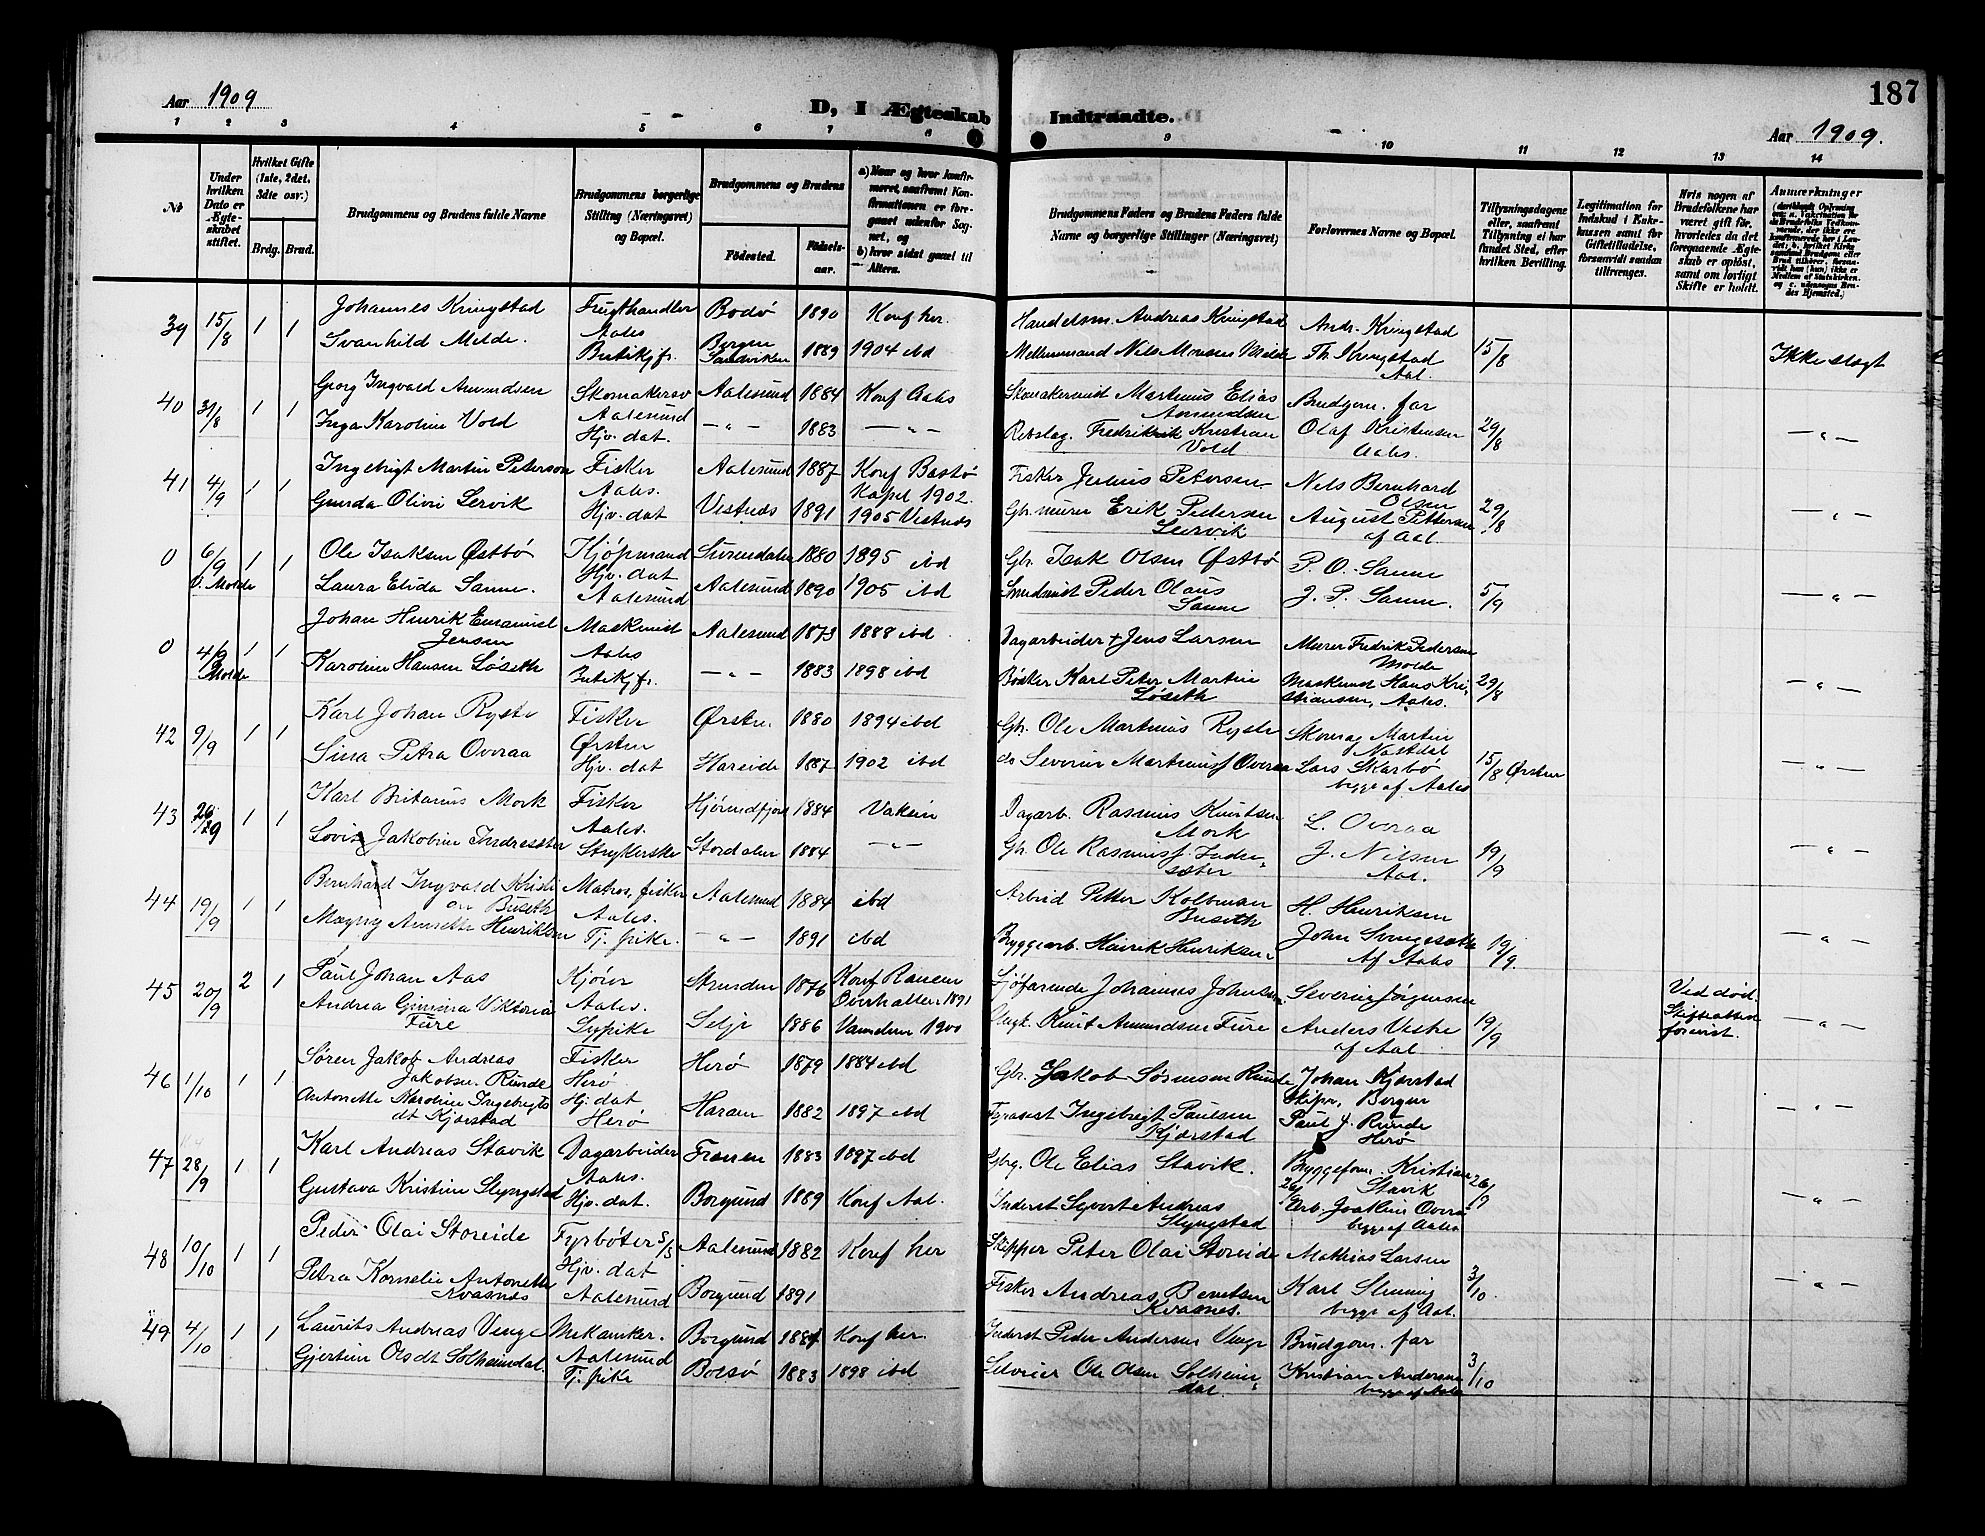 187
Aar 1909
D, I Ægteskab Indtraadte.
Aar 1909.
1 2 3 4 5 6 7 8 9 10 11 12 13 14
№
Under hvilken Dato er Ægteskabet stiftet.
Hvilket Gifte (1ste, 2det, 3die osv.)
Brdg. Brud.
Brudgommens og Brudens fulde Navne
Brudgommens borgerlige Stilling (Næringsvei) og Bopæl.
Brudgommens og Brudens
Fødested. Fødselsaar.
a) Naar og hvor konfirmeret, saafremt Konfirmationen er foregaaet udenfor Sognet, og
b) hvor sidst gaaet til Alters.
Brudgommens Faders og Brudens Faders fulde Navne og borgerlige Stillinger (Næringsvei)
Forlovernes Navne og Bopæl.
Tillysningsdagene eller, saafremt Tillysning ei har fundet Sted, efter hvilken Bevilling.
Legitimation for Indskud i Enkekassen samt for Giftetilladelse, forsaavidt saadan tiltrænges.
Hvis nogen af Brudefolkene har været gift før, hvorledes da det foregaaende Ægteskab er opløst, samt om lovligt Skifte er holdt.
Anmærkninger
39 15/8 1 1 Johannes Kringstad Frugthandler Bodø 1890 Konf her. Handelsm. Andreas Kringstad Andr. Kringstad
Aales
Svanhild Melde. Butikjfr. Bergen Sandviken 1889 1904 ibd Nils Monsen Milde Th. Kringstad Aal. 15/8 Ikke slegt
40 31/8 1 1 Georg Ingvald Amundsen Skomakersv Aalesund 1884 Konf Aales Martinus Elias Amundsen Brudgom. far
Aalesund
Inga Karoline Vold Hjv. dat. — „ — 1883 — „ — Rebslag. Fredrik Kristian Vold Olaf Kristensen Aales. 29/8 — „ —
41 4/9 1 1 Ingebrigt Martin Peterson Fisker Aalesund 1887 Konf Bastø Kapel 1902. Fisker Julius Petersen Nels Bernhard Olsen
Aales.
Gunda Olivie Lervik Hjv. dat Vestnes 1891 1905 Vestnes Gbr. murer Erik Pedersen Leirvik August Pettersen af Aal. 29/8 — „ —
0 6/9 1 1 Ole Isaksen Østbø Kjøpmand Surendalen 1880 1895 ibd Gbr. Isak Olsen Østbø P. O. Sanne
V. Molde Hjv. dat
Laura Elida Sanne. Aalesund Aalesund 1890 1905 ibd Peder Olaus Sanne J. P. Sanne. 5/9 — „ —
0 4/9 1 1 Johan Henrik Emanuel Jensen Maskinist Aalesund 1873 1888 ibd Dagarbeider † Jens Larsen Murer Fredrik Pedersen Molde
Molde Aales
Karoline Hansen Løseth Butikjfr. — „ — 1883 1898 ibd Bøkker Karl Peter Martin Løseth Hans Kristiansen, Aales. 29/8 — „ —
42 9/9 1 1 Karl Johan Ryste Fisker Ørsten 1880 1894 ibd Gbr. Ole Martinus Ryste Skomag Martin Nastdal
Ørsten
Sina Petra Overaa Hjv. dat Hareide 1887 1902 ibd do Severin Martinusf Overaa Lars Skarbø begge af Aales 15/8 Ørsten — „ —
43 1 1 Karl Britanus Mork Fisker Hjørundfjord 1884 Vaksin Dagarb. Rasmus Knutsen Mork L. Overaa
Aales.
Jakobine Indresæter Strykerske Stordalen 1884 — „ — Gbr. Ole Rasmusf. Indresæter J. Nilsen Aal. 19/9 — „ —
44 19/9 1 1 Bernhard Ingvald Kristian Buseth Matros, fisker Aalesund 1884 ibd Arbeid Petter Kolbman Buseth H. Henriksen
Aales.
Magny Annette Henriksen Tj. pike. — „ — 1891 ibd Byggearb. Henrik Henriksen John Svingseth Af Aales 19/9. — „ —
45 20/9 2 1 Paul Johan Aas Kjører Strinden 1876 Konf Ranem Overhallen 1891 Sjøfarende Johannes Johnsen Severin Jørgensen Ved død. Skifteattest forevist.
Aales.
Andrea Viktoria Fure Sypike Selje 1886 1900 Knut Amundsen Fure Anders Vestre af Aal. 19/9 — „ —
46 1/10 1 1 Søren Jakob Andreas Jakobsen Runde Fisker Herø Herø 1879 1884 ibd Gbr. Jakob Sørensen Runde Johan Kjørstad Skipr, Bergen
Antonette Karoline Ingebrigtsdt Kjørstad Hj. dat Herø Haram 1882 1897 ibd Ingebrigt Paulsen Kjørstad Paul J. Runde Herø — „ —
47 28/9 1 1 Karl Andreas Stavik Dagarbeider Frænen 1883 1897 ibd Gbrg. Ole Elias Stavik. Byggefom. Kristian Stavik 26/9
Aales.
Gustava Kristine Slyngstad Hjv. dat. Borgund 1889 Konf Aal. Inderst Syvert Andreas Slyngstad Arb. Joakim Overaa begge af Aales — „ —
48 10/10 1 1 Peder Olai Storeide Fyrbøter S/S Aalesund 1882 Konf her Skipper Peter Olai Storeide Mathias Larsen
Hjv. dat
Petra Kornelie Antonette Kvasnes Aalesund Borgund 1891 Fisker Andreas Berntsen Kvasnes. Karl begge af Aal. 3/10. — „ —
49 4/10 1 1 Laurits Andreas Venge Mekaniker. Borgund 1884 Konf her. Inderst Peder Andersen Venge Brudgom. far
Aalesund
Gjertine Olsdt Solheimdal. Tj. pike Bolsø 1883 1898 ibd Selveier Ole Olsen Solheimdal. Kristian Andersen begge af Aales 3/10